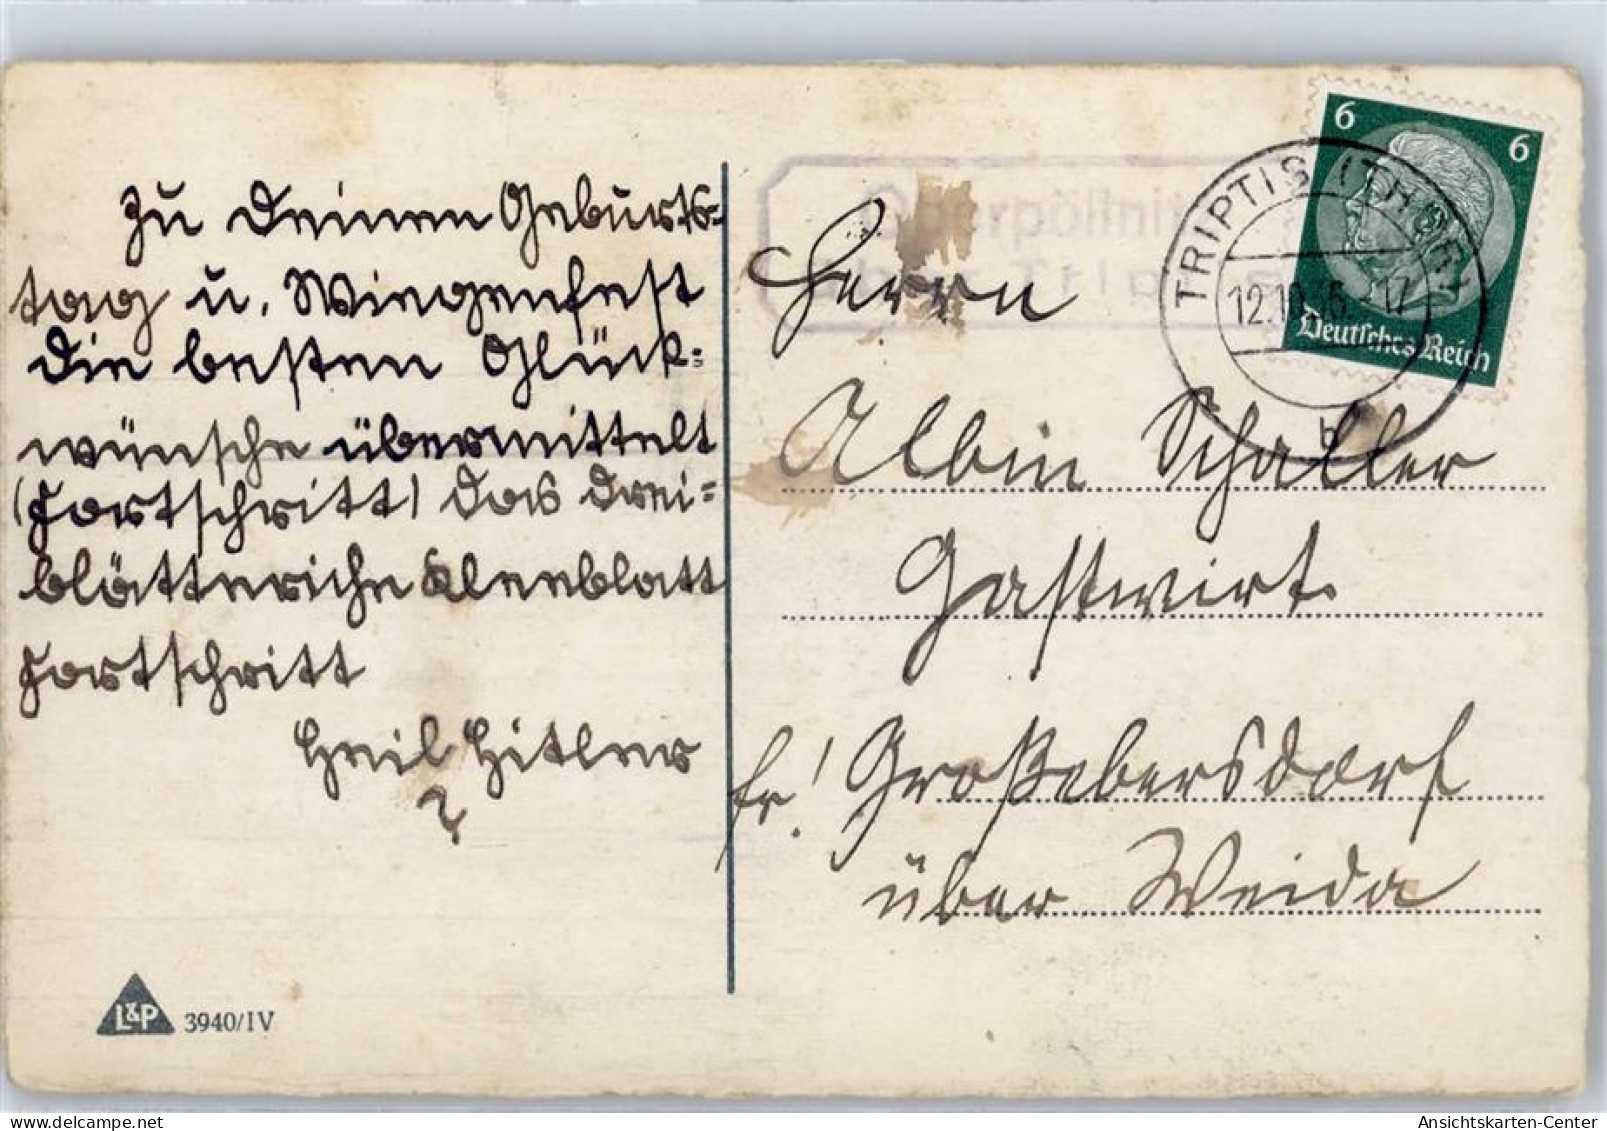 Zu Deinem Geburts-
tag u. Wiegenfest
die besten Glück-
wünsche übermittelt
(Fortschritt) das drei-
blätteriche Kleeblatt
Fortschritt
Heil Hitler
?
L&P 3940/IV
Oberpöllnitz
TRIPTIS (THÜR)
12.10.36. 17
b
6 6
Deutsches Reich
Herrn
Albin Schaller
Gastwirt.
fr! Großebersdorf
über Weida
Ansichtskarten-Center